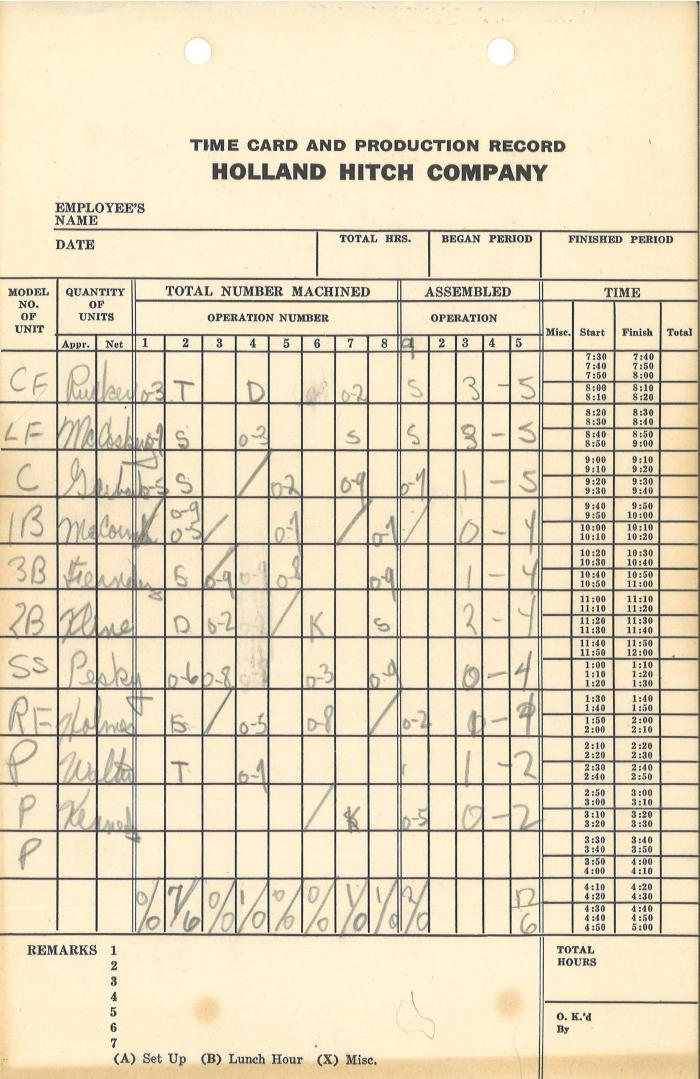 TIME CARD AND PRODUCTION RECORD
HOLLAND HITCH COMPANY
EMPLOYEE'S
NAME
DATE TOTAL HRS. BEGAN PERIOD FINISHED PERIOD
MODEL NO. OF UNIT QUANTITY OF UNITS TOTAL NUMBER MACHINED ASSEMBLED TIME
OPERATION NUMBER OPERATION Misc. Start Finish Total
Appr. Net 1 2 3 4 5 6 7 8 9 2 3 4 5
7:30 7:40
7:40 7:50
7:50 8:00
CF Rucker 0-3 T D 0-2 S 3-5 8:00 8:10
8:10 8:20
8:20 8:30
8:30 8:40
LF McCosky S 0-3 S S 3-5 8:40 8:50
8:50 9:00
9:00 9:10
9:10 9:20
C 0-5 S 0-2 0-9 0-7 1-5 9:20 9:30
9:30 9:40
9:40 9:50
9:50 10:00
1B 0-9 0-5 0-7 0-7 0-4 10:00 10:10
10:10 10:20
10:20 10:30
10:30 10:40
3B S 0-9 0-9 0-8 0-9 1-4 10:40 10:50
10:50 11:00
11:00 11:10
11:10 11:20
2B Kline D 0-2 K S 2-4 11:20 11:30
11:30 11:40
11:40 11:50
11:50 12:00
SS Pesky 0-6 0-8 0-3 0-9 0-4 1:00 1:10
1:10 1:20
1:20 1:30
1:30 1:40
1:40 1:50
RF Holmes S 0-5 0-8 0-2 1:50 2:00
2:00 2:10
2:10 2:20
2:20 2:30
P T 1-2 2:30 2:40
2:40 2:50
2:50 3:00
3:00 3:10
P Kennedy K 0-5 0-2 3:10 3:20
3:20 3:30
3:30 3:40
3:40 3:50
P 3:50 4:00
4:00 4:10
4:10 4:20
4:20 4:30
0/0 7/6 0/0 1/0 0/0 0/0 1/0 1/0 2/0 12 6 4:30 4:40
4:40 4:50
4:50 5:00
REMARKS 1 TOTAL
2 HOURS
3
4
5
6 O. K.'d
7 By
(A) Set Up (B) Lunch Hour (X) Misc.